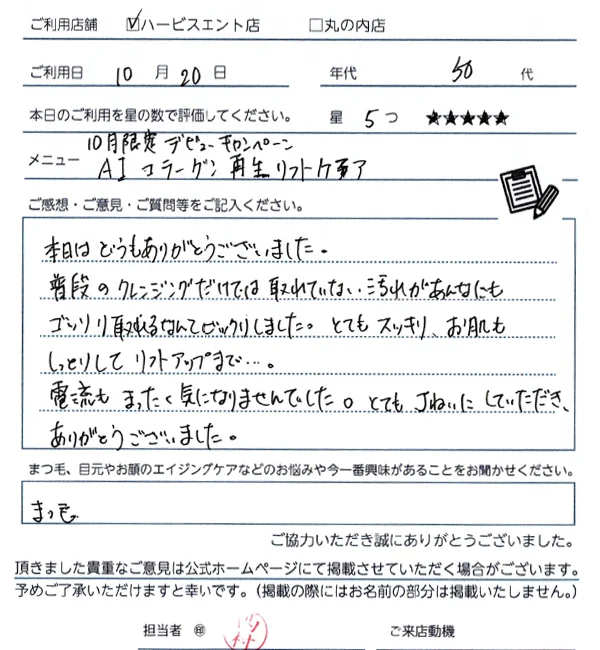 ご利用店舗 ☑ハービスエント店 □丸の内店
ご利用日 10月20日 年代 50代
本日のご利用を星の数で評価してください。 星 5つ ★★★★★
10月限定 デビューキャンペーン
メニュー AI コラーゲン再生リフトケア
ご感想・ご意見・ご質問等をご記入ください。
本日はどうもありがとうございました。
普段のクレンジングだけでは取れていない汚れがあんなにも
ゴッソリ取れるなんてビックリしました。とてもスッキリ、お肌も
しっとりしてリフトアップまで…。
電流もまったく気になりませんでした。とても丁ねいにしていただき、
ありがとうございました。
まつ毛、目元やお顔のエイジングケアなどのお悩みや今一番興味があることをお聞かせください。
まつ毛
ご協力いただき誠にありがとうございました。
頂きました貴重なご意見は公式ホームページにて掲載させていただく場合がございます。
予めご了承いただけますと幸いです。（掲載の際にはお名前の部分は掲載いたしません。）
担当者 ㊞ ご来店動機